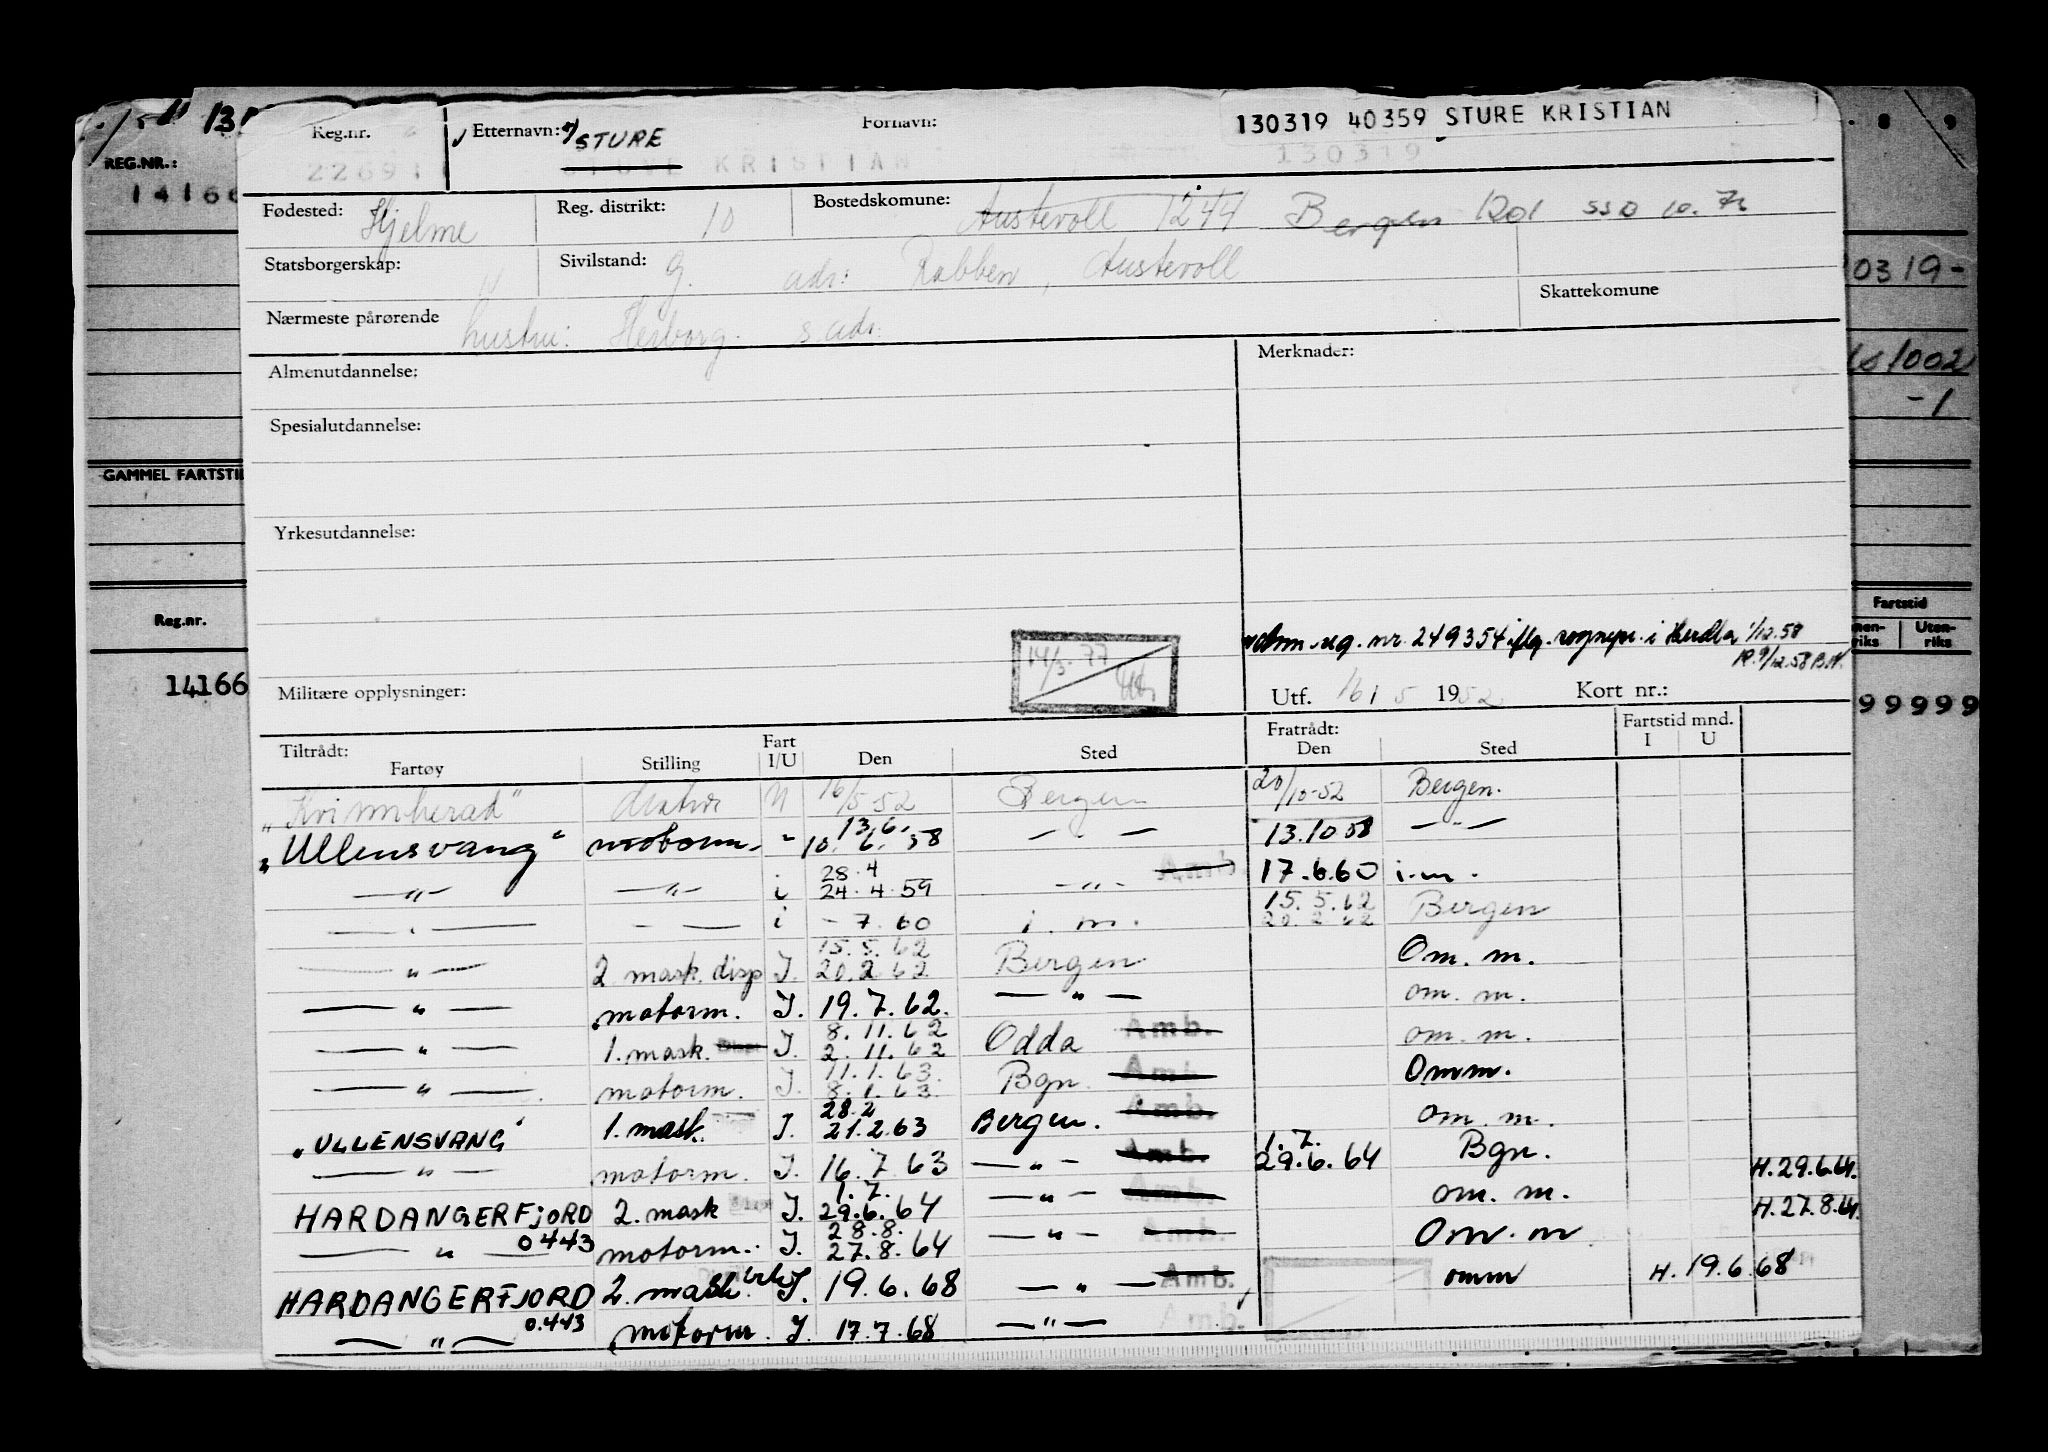 REG.NR.:
14166
GAMMEL FARTSTI
Reg.nr.
14166
Reg.nr.
Etternavn: STURE
Fornavn:
130319 40359 STURE KRISTIAN
KRISTIAN
130319
Fødested: Hjelme
Reg. distrikt: 10
Bostedskomune: Austevoll 1244 Bergen 1201
Statsborgerskap:
Sivilstand: g. adr: Rabben, Austevoll
Nærmeste pårørende
hustru: Herborg. s. adr.
Skattekomune
0319-
1002
-1
Almenutdannelse:
Merknader:
Spesialutdannelse:
Yrkesutdannelse:
reg. nr. 249354 i Herdla 1/12.58
14/3-77
Militære opplysninger:
Utf. 16/5 1952
Kort nr.:
Fartstid
Uten-
riks
99999
Tiltrådt:
Fartøy
Stilling
Fart
I/U
Den
Sted
Fratrådt:
Den
Sted
Fartstid mnd.
I U
"Kvinnherad" U 16/5-52 Bergen 20/10-52 Bergen.
13.6.
"Ullensvang" motorm. - 10.6.58 — " — 13.10.58 — " —
28.4
— " — — " — i 24.4.59 — " — Amb. 17.6.60 i.m.
15.5.62
— " — — — i - 7.60 i.m. 20.2.62 Bergen
15.5.62
— " — 2 mask. disp I. 20.2.62 Bergen Om. m.
— " — motorm. I. 19.7.62. — " — om. m.
8.11.62
— " — 1. mask. I. 2.11.62 Odda Amb. om. m.
11.1.63.
— " — motorm. I. 8.1.63. Bgn Amb. Omm.
28.2
"ULLENSVANG" 1. mask. I. 21.2.63 Bergen. Amb. om. m.
1.7.
— " — motorm. I. 16.7.63 — " — Amb. 29.6.64 Bgn. H.29.6.64.
1.7.
HARDANGERFJORD 2. mask I. 29.6.64 — " — Amb. om. m. H.27.8.64.
28.8.
— " — 0443 motorm. I. 27.8.64 — " — Amb. Om. m
HARDANGERFJORD 2. mask. I. 19.6.68 — " — Amb. omm H. 19.6.68
— " — 0.443 motorm. I. 17.7.68 — " — Amb.